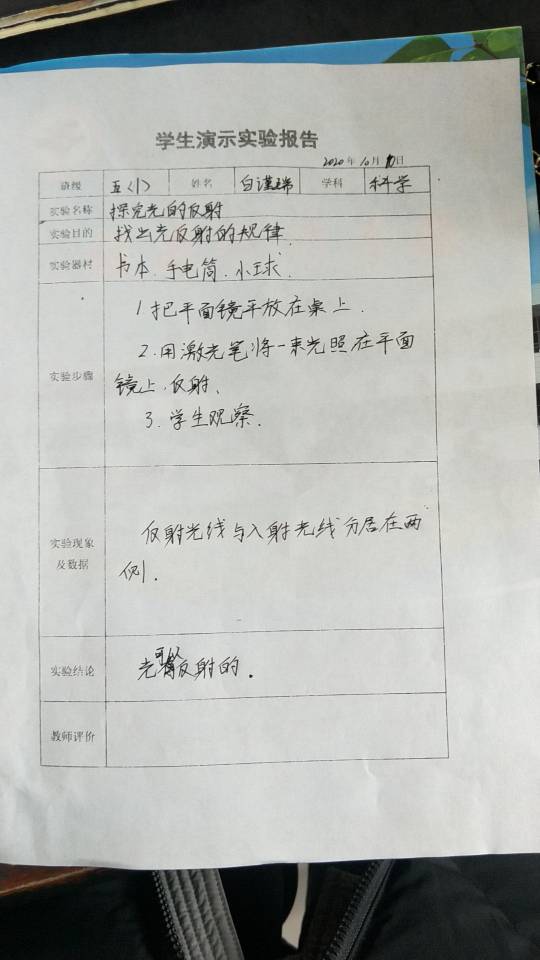 学生演示实验报告
2020年10月10日
班级 五(1) 姓名 白谨瑞 学科 科学
实验名称 探究光的反射
实验目的 找出光反射的规律.
实验器材 书本.手电筒.小球.
1.把平面镜平放在桌上.
2.用激光笔将一束光照在平面
实验步骤 镜上,反射、
3.学生观察.
实验现象 反射光线与入射光线分居在两
及数据 侧.
实验结论 光可以反射的.
教师评价